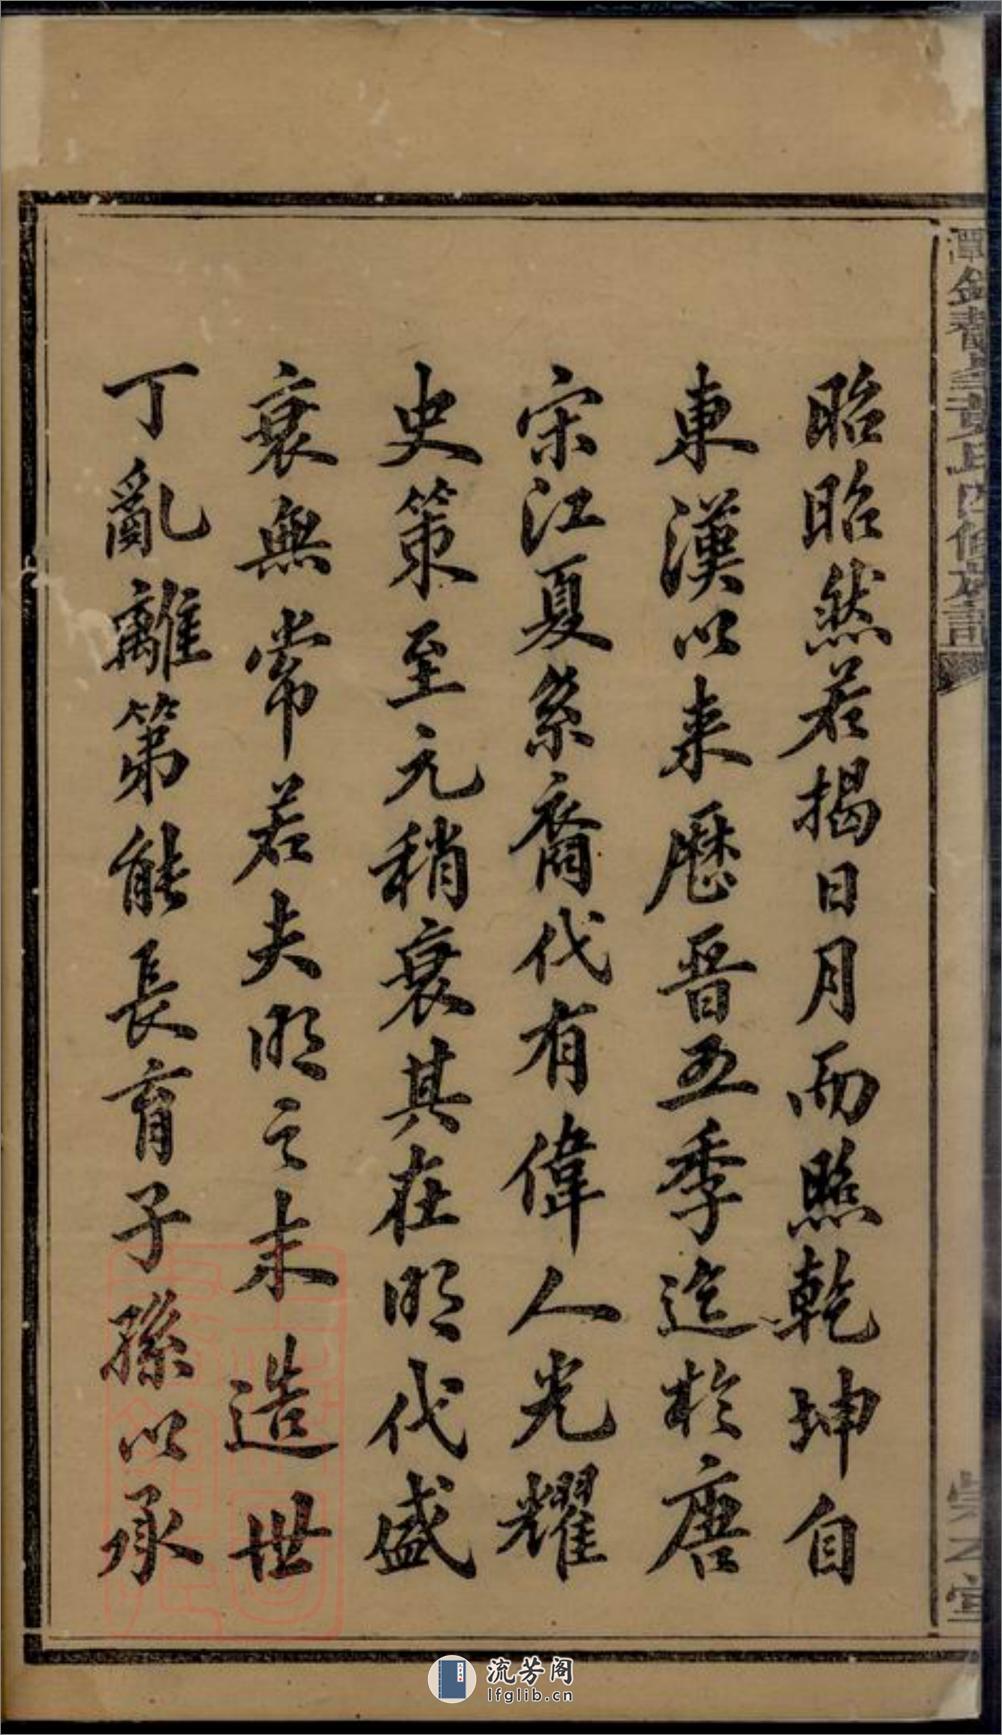 昭昭然若揭日月而照乾坤自
東漢以来歷晉五季迄於唐
宋江夏系裔代有偉人光耀
史策至元稍衰其在明代盛
衰無常若夫明之末造世
丁亂離第能長育子孫以承
流芳阁
lfglib.cn